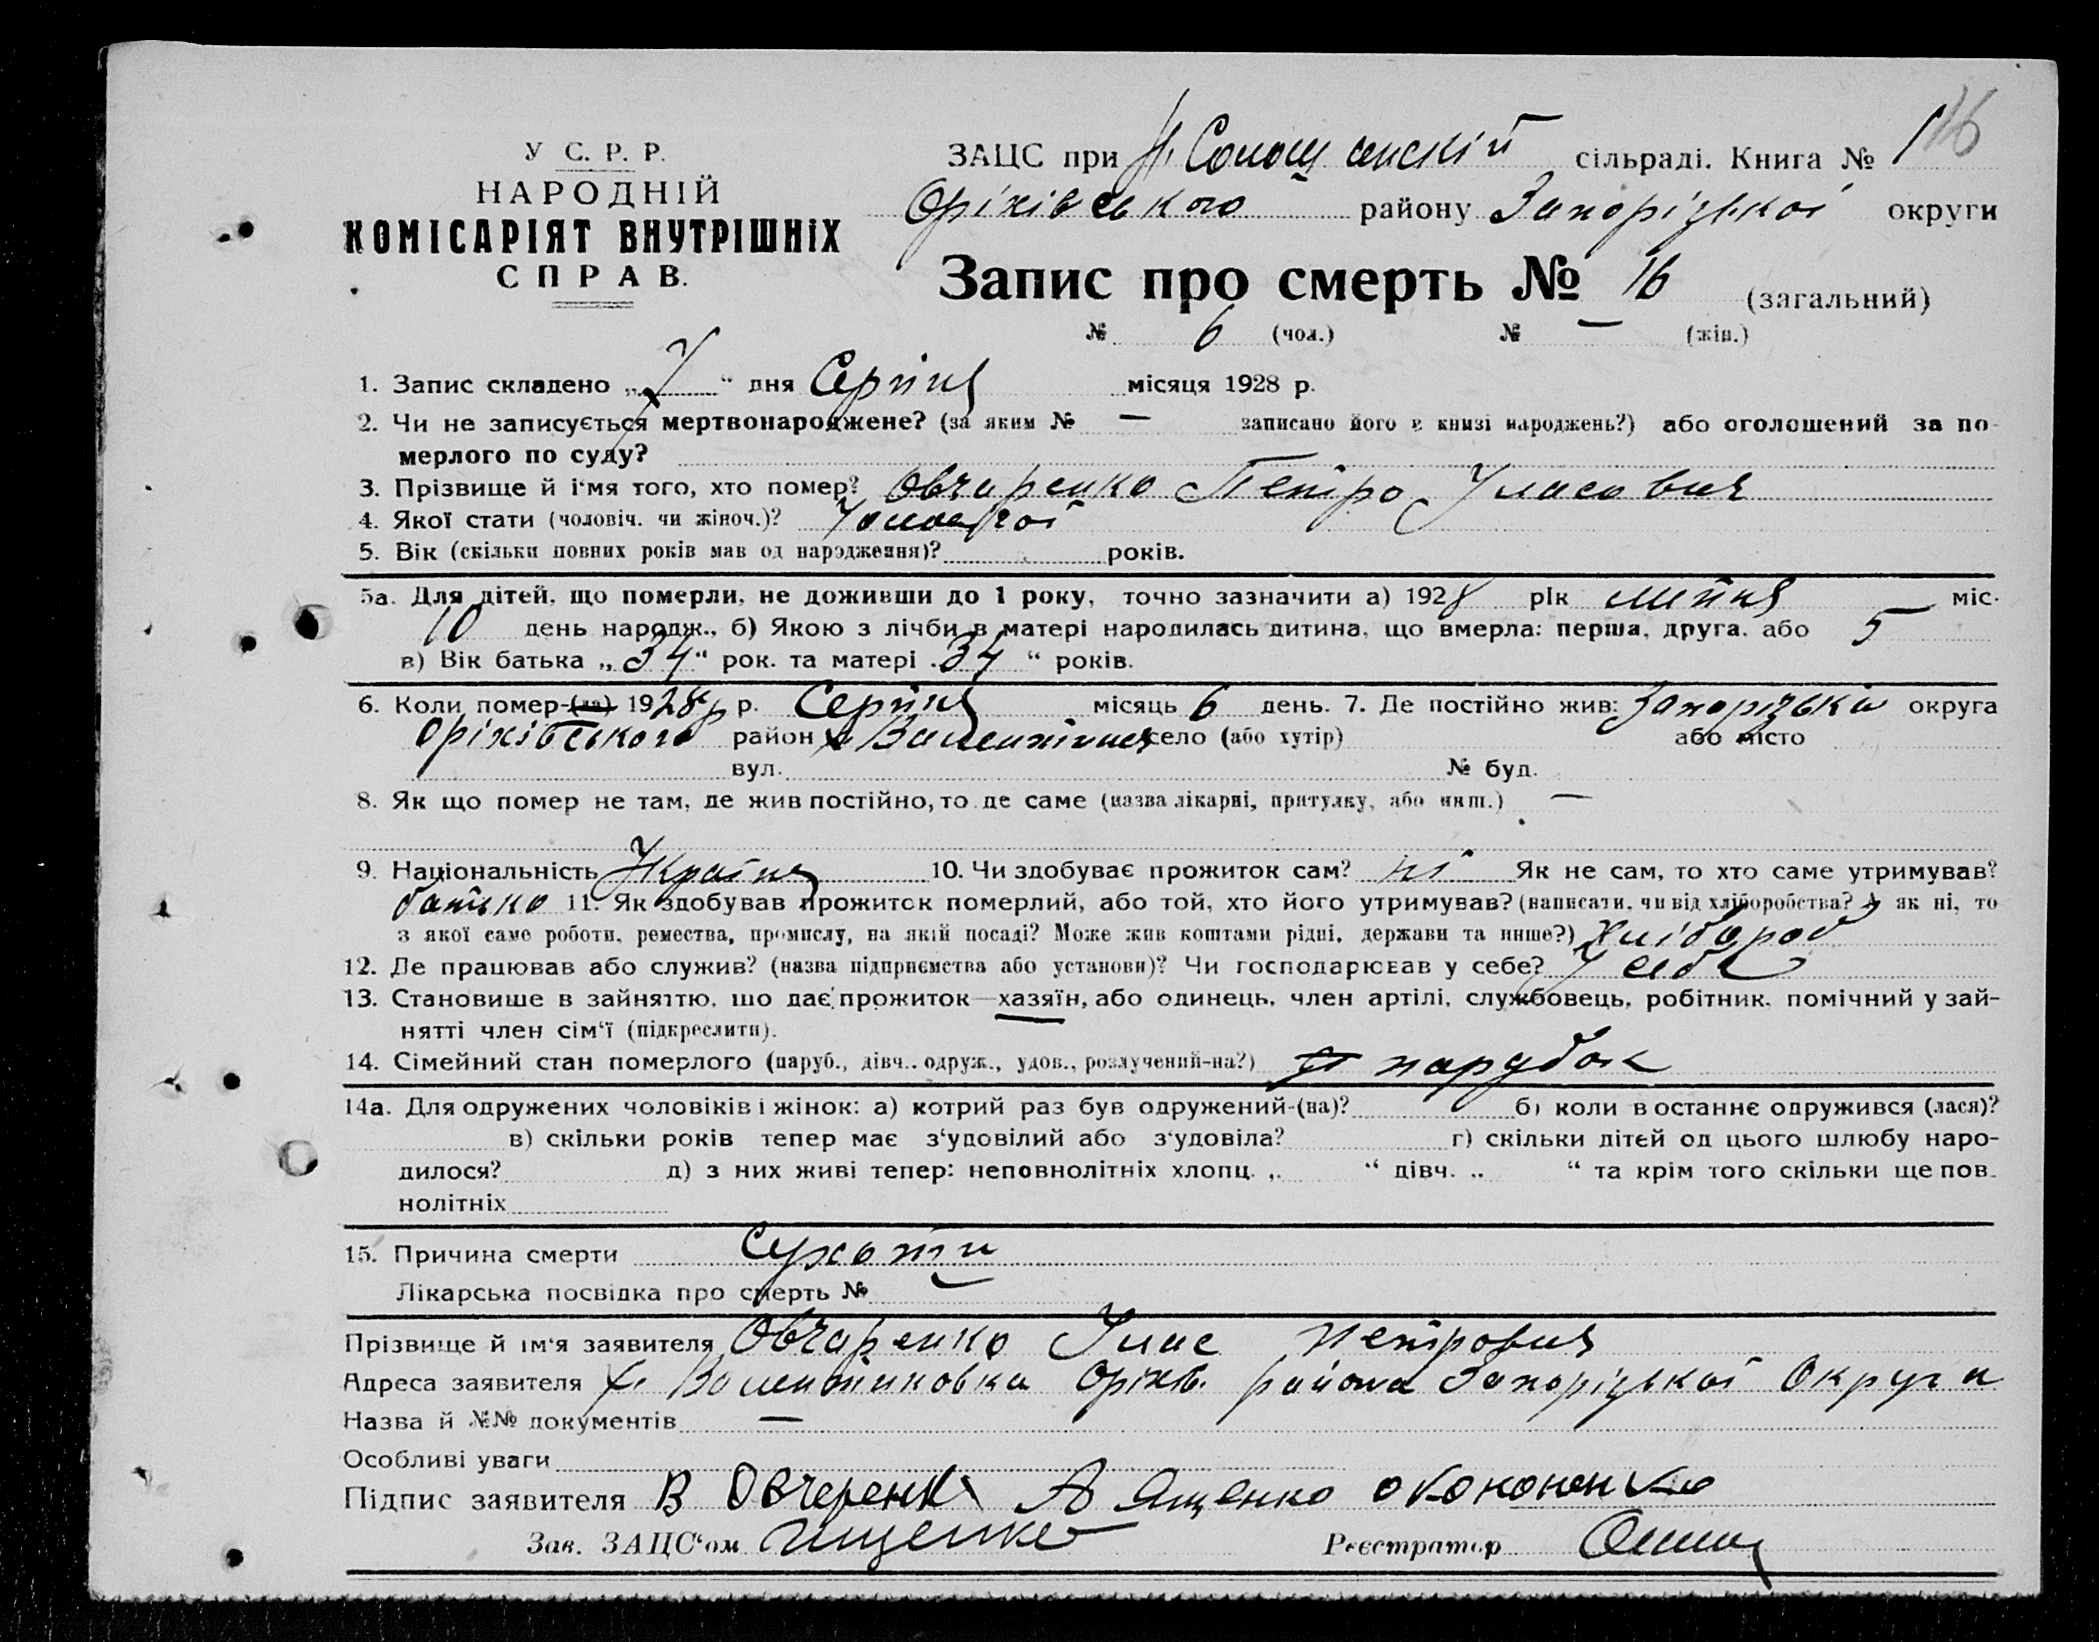 У С. Р. Р.
НАРОДНІЙ
КОМІСАРІЯТ ВНУТРІШНІХ
СПРАВ.
ЗАЦС при сільраді. Книга № 1 16
Оріхівського району Запорізької округи
Запис про смерть № 16 (загальний)
№ 6 (чол.) № — (жін.)
1. Запис складено „ 7 “ дня Серпня місяця 1928 р.
2. Чи не записується мертвонароджене? (за яким № — записано його в книзі народжень?) або оголошений за по-
мерлого по суду?
3. Прізвище й і‘мя того, хто помер? Овчаренко Петро Уласович
4. Якої стати (чоловіч. чи жіноч.)?
5. Вік (скільки повних років мав од народження)? років.
5а. Для дітей, що померли, не доживши до 1 року, точно зазначити а) 1928 рік липня міс.
10 день народж., б) Якою з лічби в матері народилась дитина, що вмерла: перша, друга, або 5
в) Вік батька „ 34 “ рок. та матері „ 34 “ років.
6. Коли помер-(ла) 1928 р р. Серпня місяць 6 день. 7. Де постійно жив: Запорізька округа
Оріхівського район х. село (або хутір) або місто
вул. № буд.
8. Як що помер не там, де жив постійно, то де саме (назва лікарні, притулку, або инш.) —
9. Національність Україн 10. Чи здобуває прожиток сам? ні Як не сам, то хто саме утримував?
батько 11. Як здобував прожиток померлий, або той, хто його утримував? (написати, чи від хліборобства? А як ні, то
з якої саме роботи, ремества, промислу, на якій посаді? Може жив коштами рідні, держави та инше?) Хлібороб
12. Де працював або служив? (назва підприємства або установи)? Чи господарював у себе? У себе
13. Становище в зайняттю, що дає прожиток—хазяїн, або одинець, член артілі, службовець, робітник, помічний у зай-
нятті член сім‘ї (підкреслити).
14. Сімейний стан померлого (паруб., дівч., одруж., удов., розлучений-на?) парубок
14а. Для одружених чоловіків і жінок: а) котрий раз був одружений-(на)? б) коли в останнє одружився (лася)?
в) скільки років тепер має з‘удовілий або з‘удовіла? г) скільки дітей од цього шлюбу наро-
дилося? д) з них живі тепер: неповнолітніх хлопц. „ “ дівч. „ “ та крім того скільки ще пов-
нолітніх
15. Причина смерти Сухоти
Лікарська посвідка про смерть № —
Прізвище й ім‘я заявителя Овчаренко Улас Петрович
Адреса заявителя х. Валентиновка Оріхів. района Запорізької Округи
Назва й №№ документів —
Особливі уваги
Підпис заявителя В Овчеренк А Ященко О Кононенко
Зав. ЗАЦС‘ом Ищенко Реєстратор